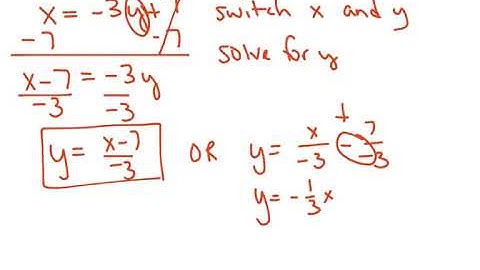 x = -3y + 7 switch x and y
-7 -7 solve for y
x-7/-3 = -3y/-3
y = x-7/-3 OR y = x/-3 - 7/-3
+
y = -1/3 x